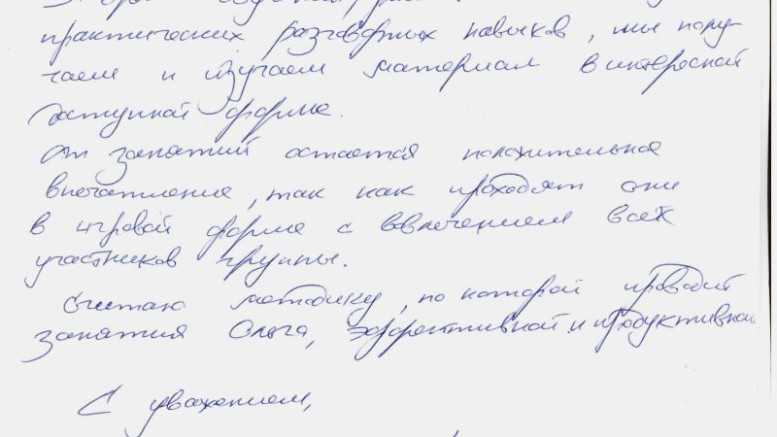 практических разговорных навыков, мы полу-
чаем и изучаем материал в интересной
доступной форме.
От занятий остается положительное
впечатление, так как проходят они
в игровой форме с вовлечением всех
участников группы.
Считаю методику, по которой проводит
занятия Ольга, эффективной и продуктивной
С уважением,